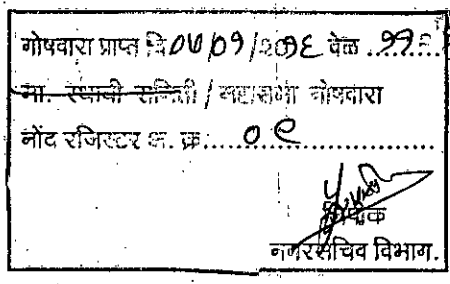 गोषवारा प्राप्त दि ०७/०१/२०१६ वेळ .११
मा. स्थायी समिती / महासभा गोषवारा
नोंद रजिस्टर अ. क्र......०९
लिपिक
नगरसचिव विभाग.